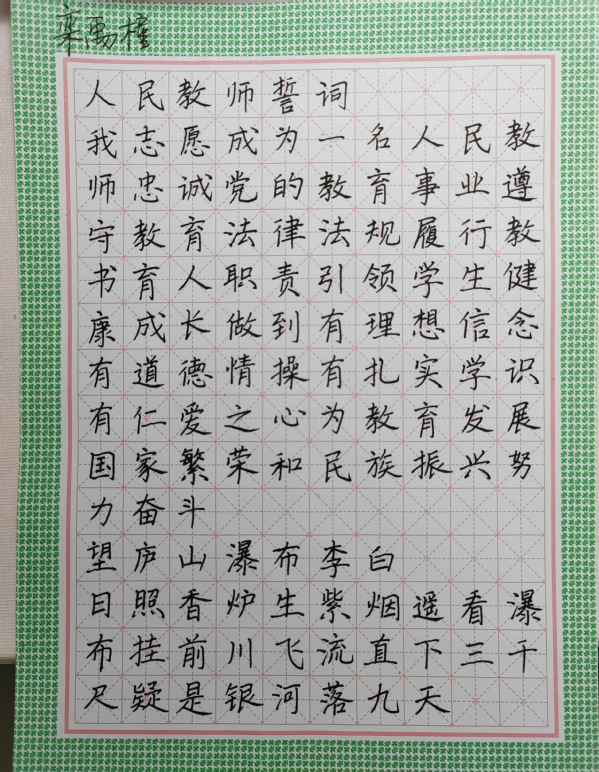 栾禹槿
人民教师誓词
我志愿成为一名人民教
师忠诚党的教育事业遵
守教育法律法规履行教
书育人职责引领学生健
康成长做到有理想信念
有道德情操有扎实学识
有仁爱之心为教育发展
国家繁荣和民族振兴努
力奋斗
望庐山瀑布李白
日照香炉生紫烟遥看瀑
布挂前川飞流直下三千
尺疑是银河落九天